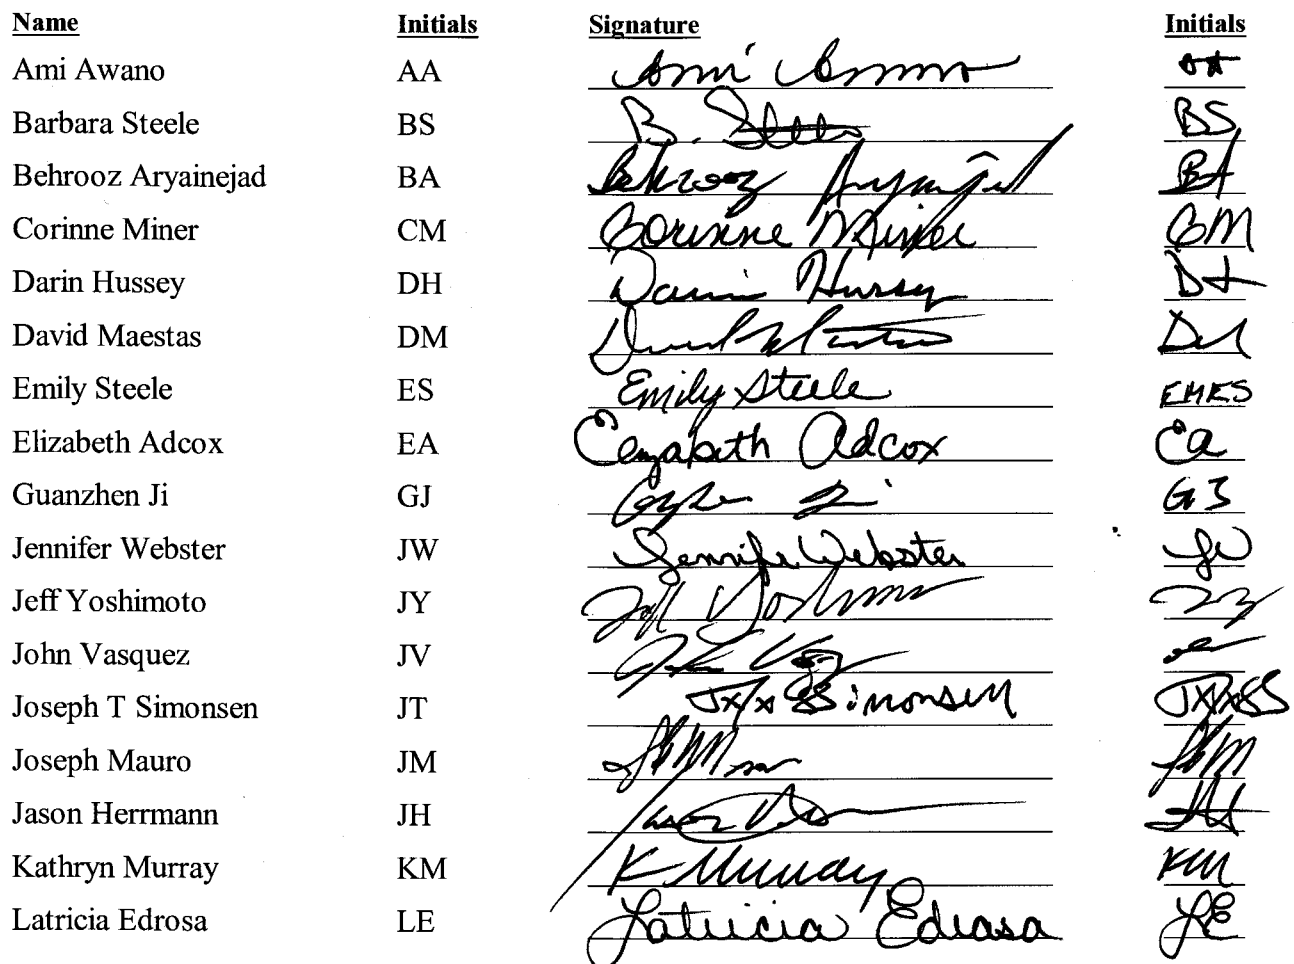 Name Initials Signature Initials
Ami Awano AA Ami Awano AA
Barbara Steele BS B. Steele BS
Behrooz Aryainejad BA Behrooz Aryainejad BA
Corinne Miner CM Corinne Miner CM
Darin Hussey DH Darin Hussey DH
David Maestas DM David Maestas DM
Emily Steele ES Emily Steele EMKS
Elizabeth Adcox EA Elizabeth Adcox EA
Guanzhen Ji GJ Ji GJ
Jennifer Webster JW Jennifer Webster JW
Jeff Yoshimoto JY Jeff Yoshimoto JY
John Vasquez JV
Joseph T Simonsen JT Simonsen
Joseph Mauro JM
Jason Herrmann JH Jason JH
Kathryn Murray KM K Murray KM
Latricia Edrosa LE Latricia Edrosa LE